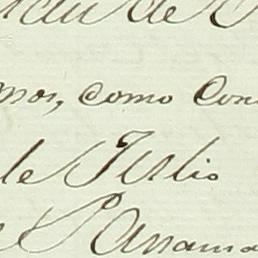 de
mos, como Con
de Julio
Panama